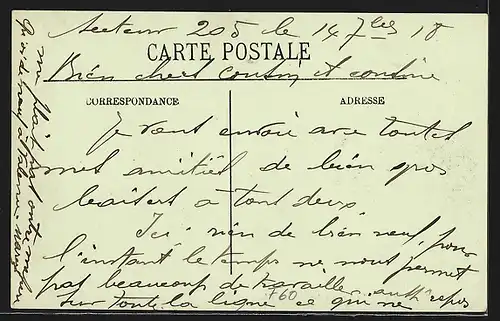 Secteur 205 le 14 7bre 18
CARTE POSTALE
Bien chert cousin, et cousine
CORRESPONDANCE
ADRESSE
Je vout envoie avec toutet
met amitiét de bien gros
baisert a tout deux
Ici rien de bien neuf, pour
l'instant le temps ne nous permet
pat beaucoup de travailler. repos
sur toute la ligne ce qui ne
F60
m plait pat